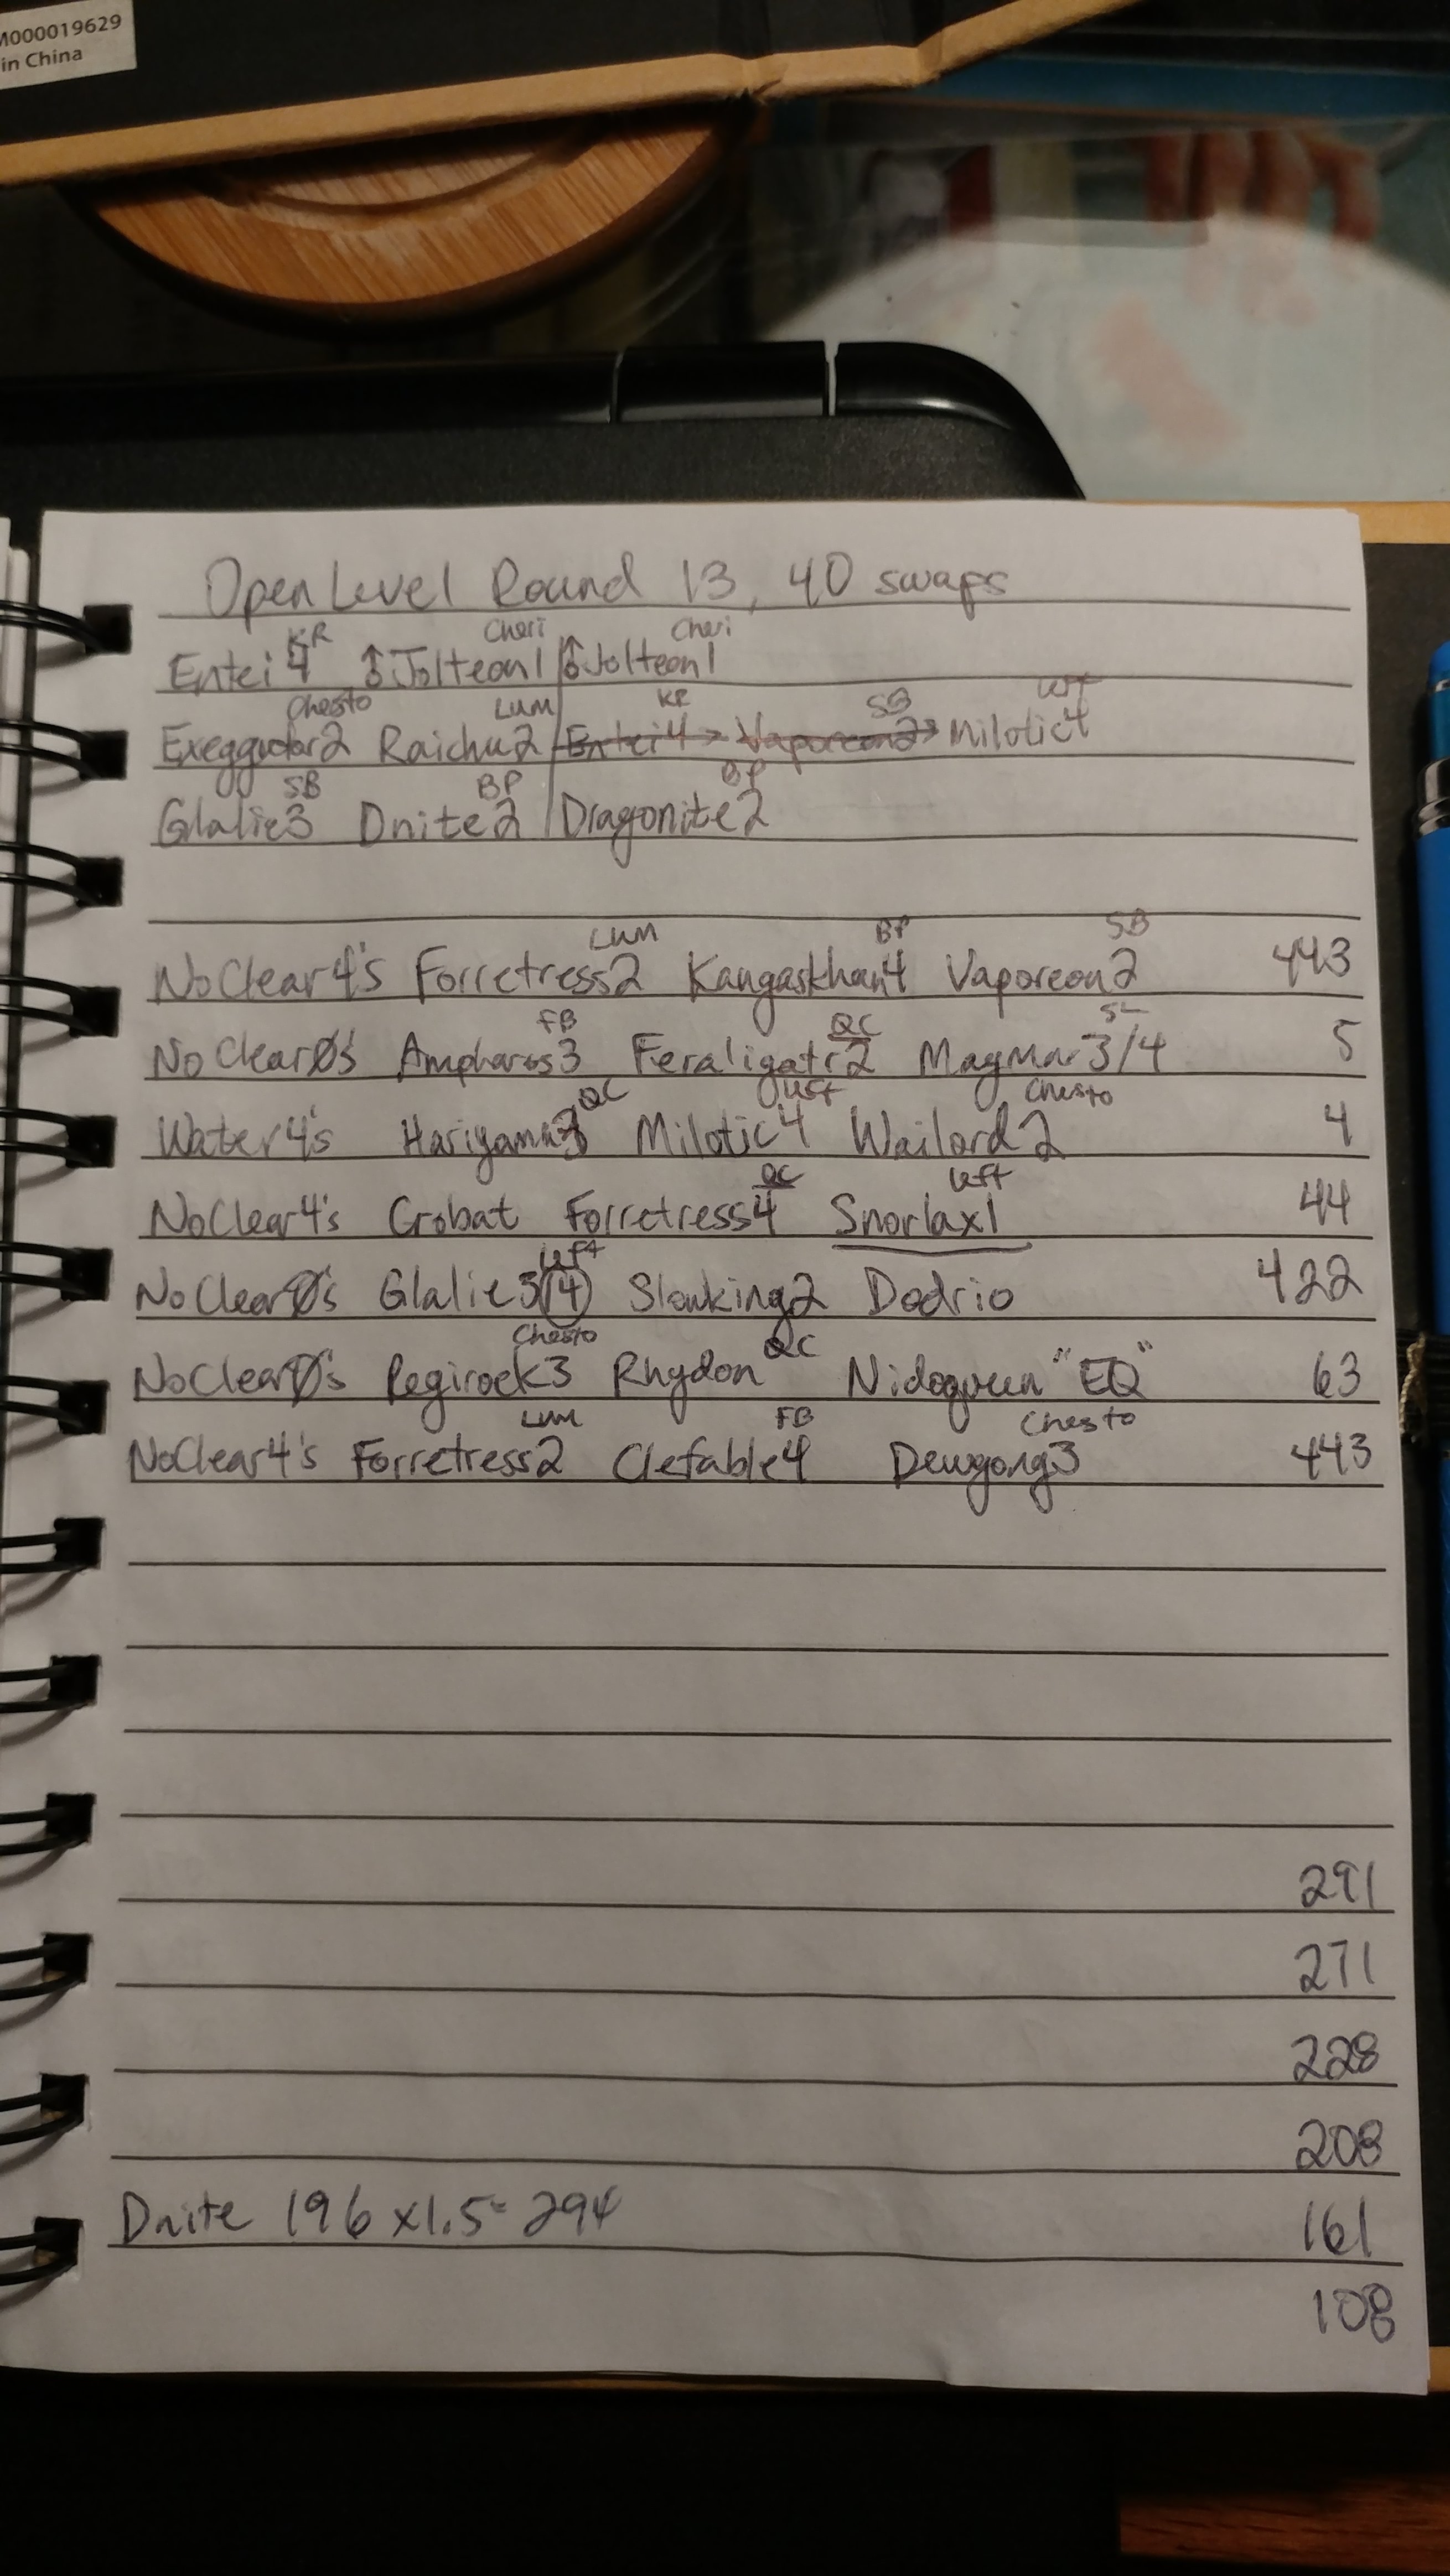 M000019629
in China
Open Level Round 13, 40 swaps
KR Cheri Cheri
Entei4 ↑Jolteon1 ↑Jolteon1
Chesto LUM KR SB Left
Exeggutor2 Raichu2 Entei4 → Vaporeon2 → Milotic4
SB BP BP
Glalie3 Dnite2 Dragonite2
LUM BP SB
NoClear4's Forretress2 Kangaskhan4 Vaporeon2 443
FB QC SL
NoClear0's Ampharos3 Feraligatr2 Magmar3/4 5
QC Left Chesto
Water4's Hariyama3 Milotic4 Wailord2 4
QC Left
NoClear4's Crobat Forretress4 Snorlax1 44
Left
NoClear0's Glalie3/4 Slowking2 Dodrio 422
Chesto QC
NoClear0's Regirock3 Rhydon Nidoqueen "EQ" 63
Lum FB Chesto
NoClear4's Forretress2 Clefable4 Dewgong3 443
291
271
228
208
Dnite 196 x1.5= 294 161
108